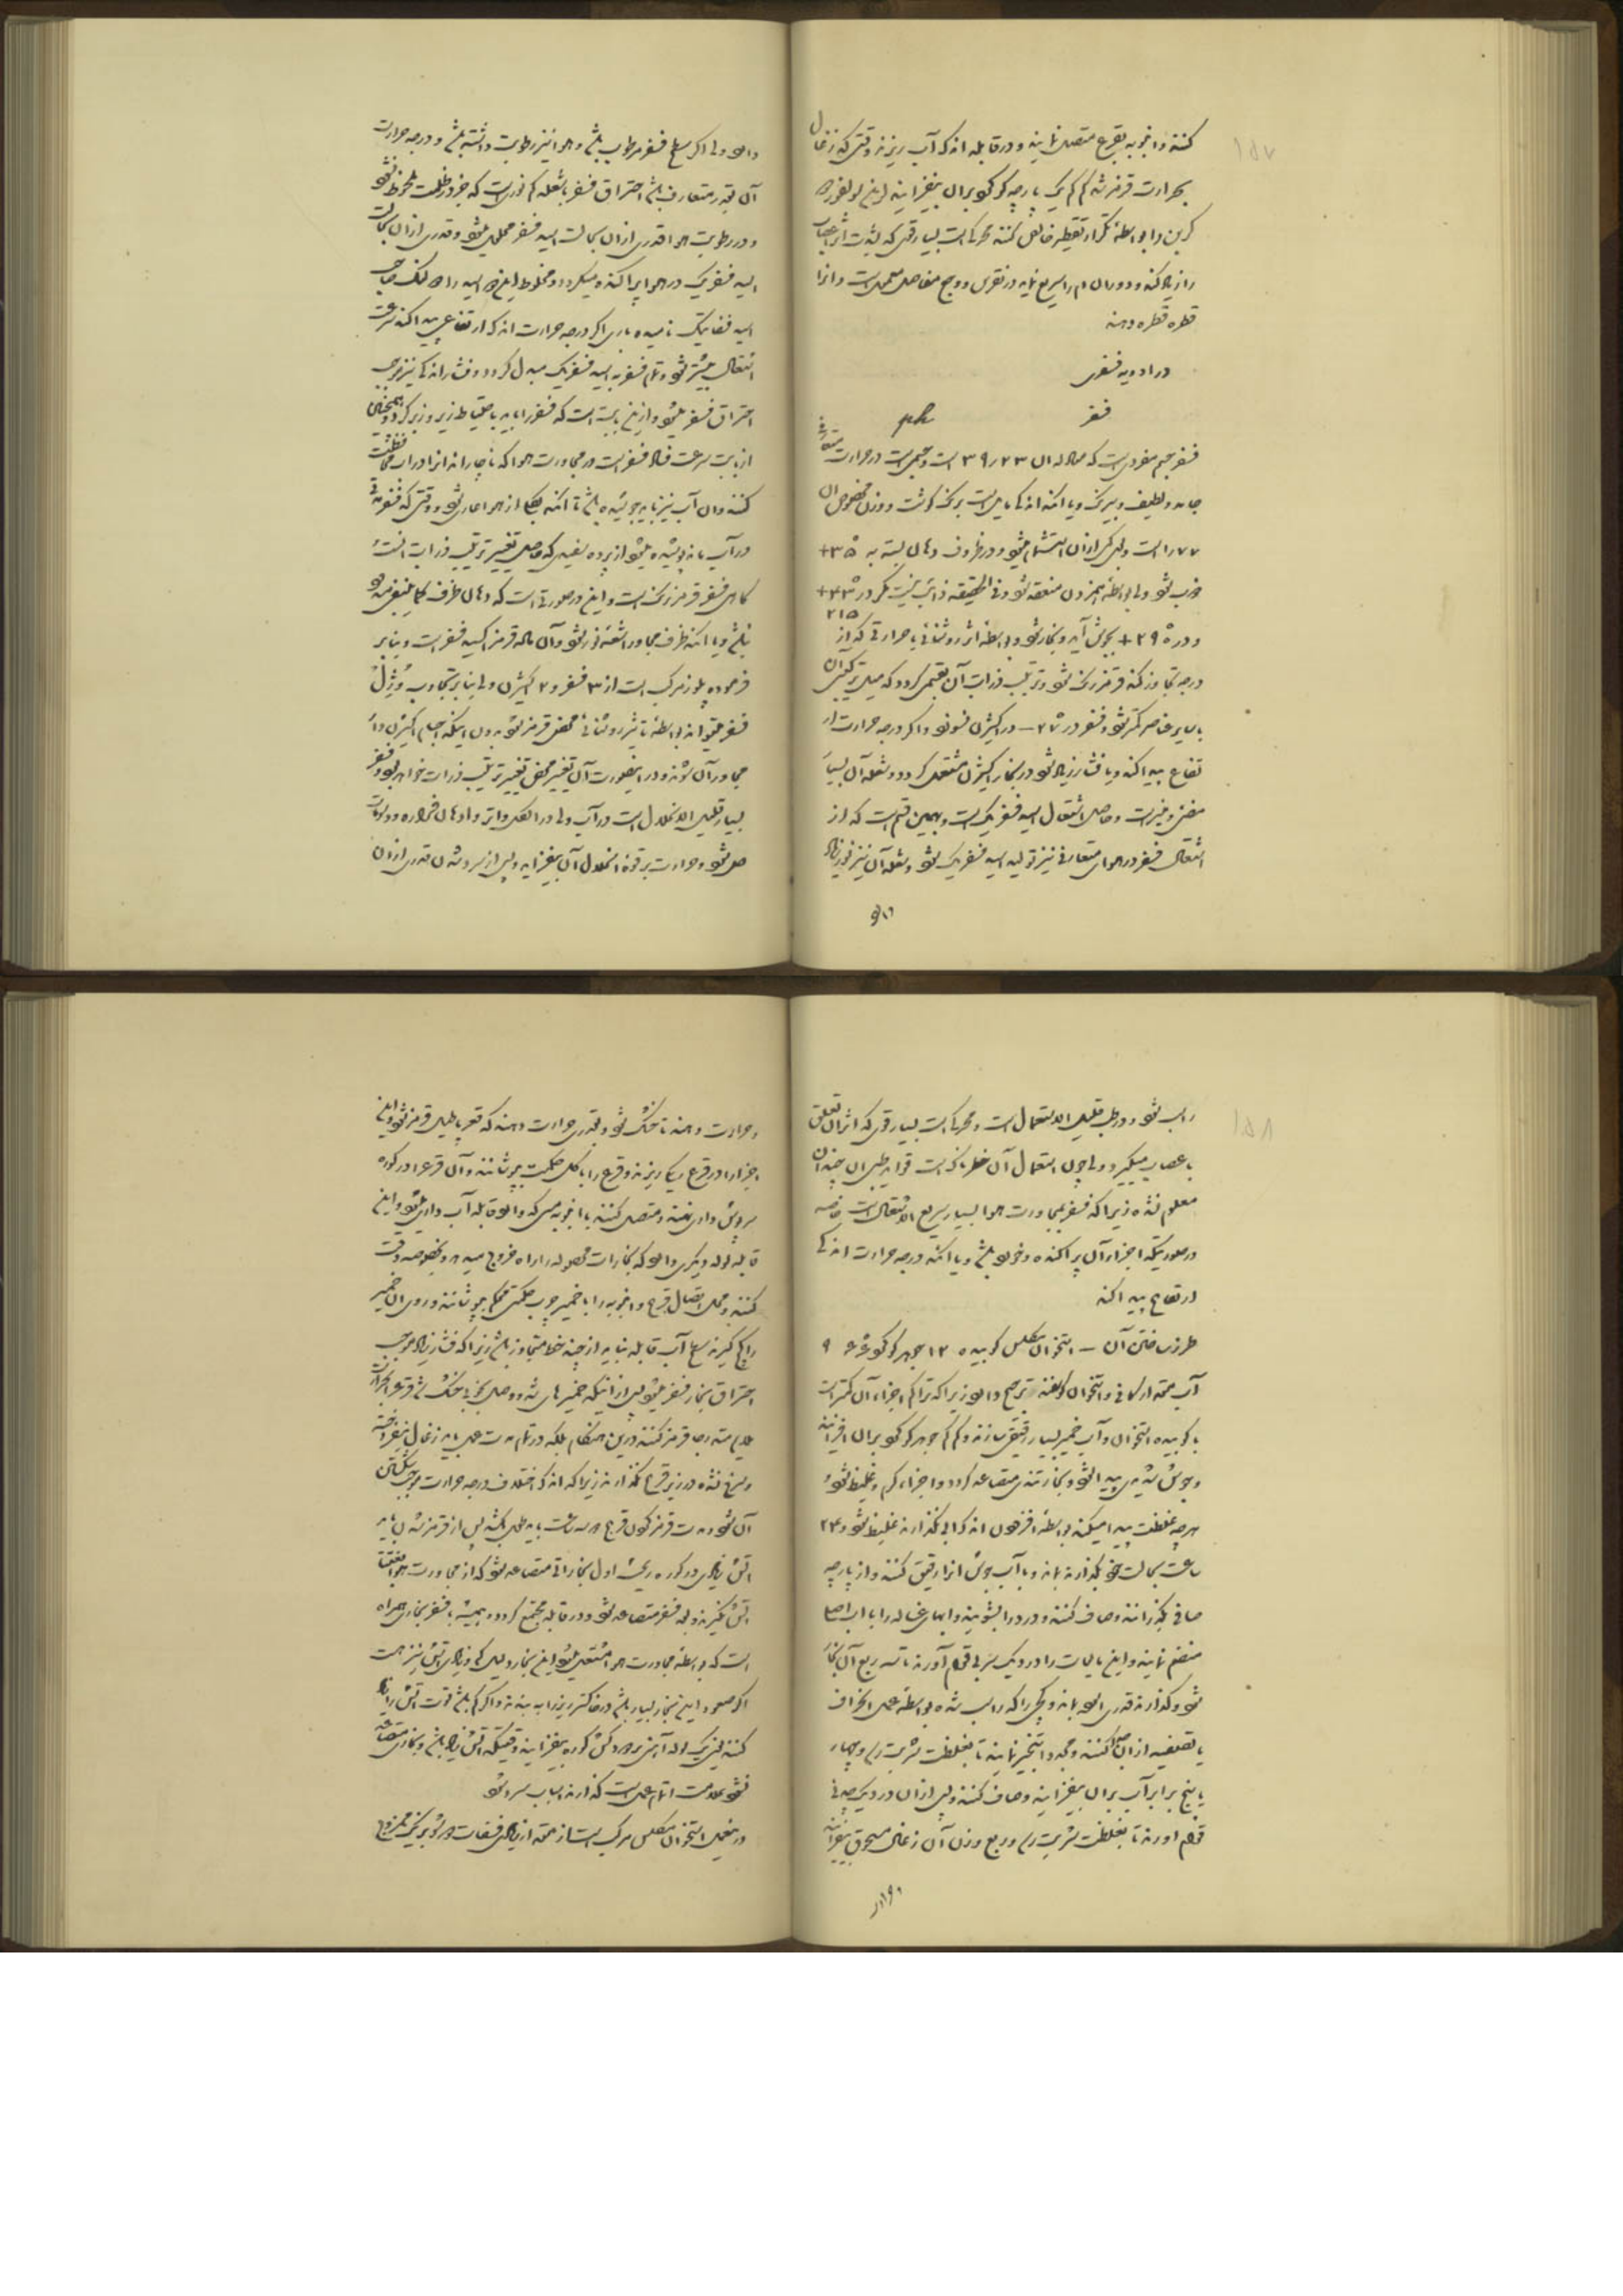 ۱۵۷
کنند و انبوبه بقرع متصل نمایند و در قابله اندکی آب ریزند وقتی که زغال
بحرارت قرمز شد کم کم یک پارچه گوگرد بر آن بیفزایند این سولفور دو
کربن را بواسطه تکرار تقطیر خالص کنند محرکی است بسیار قوی که بشدت اثر اعصاب
را زیاد کند و دوران دم را سریع نماید در نقرس و وجع مفاصل معمول است و آنرا
قطره قطره دهند
در ادویه فسفری
فسفر ph
فسفر جسم مفردی است که معادله آن ۳۹٫۲۳ است و جسمی است در حرارت متعارفه
جامد و لطیف و بیرنگ و یا آنکه اندکی مایل است برنگ گوشت و وزن مخصوص آن
۱٫۷۷ است و بوی کمی از آن استشمام میشود و در ظروف دهان بسته به ۳۵+
ذوب شود ولی بواسطه بهمزدن منعقد شود و فی الحقیقه ذائب نیست مگر در ۴۳+
و در ۲۹۵+ بجوش آید و بخار شود و بواسطه اثر روشنائی یا حرارتی که از ۲۱۵
درجه تجاوز کند قرمز رنگ شود و ترتیب ذرات آن بقسمی گردد که میل ترکیبی آن
با سایر عناصر کمتر شود فسفر در ۲۷− در اکسیژن نسوزد و اگر درجه حرارت ار
تفاع پیدا کند و یا فشار زیاد شود در بخار اکسیژن مشتعل گردد و شعله آن بسیار
مضئ و خیره است و حاصل اشتعال اسید فسفریک است و بهمین قسم است که از
اشتعال فسفر در هوای متعارفی نیز تولید اسید فسفریک شود و شعله آن نیز نور زیاد
دارد
دارد ولی اگر سطح فسفر مرطوب باشد و هوا نیز رطوبت داشته باشد و درجه حرارت
آن بقدر متعارف باشد احتراق فسفر با شعله کم نوری است که جز در ظلمت ملحوظ نشود
و در رطوبت هوا قدری از آن بحالت اسید فسفر محلول میشود و قدری از آن بحالت
اسید فسفریک در هوا پراکنده میگردد و مخلوط این دو اسید را دولنگ صاحب
اسید فسفاتیک نامیده باری اگر درجه حرارت اندکی ارتفاعی پیدا کند سرعت
اشتعال بیشتر شود و تمام فسفر به اسید فسفریک مبدل گردد و فشار اندکی نیز موجب
احتراق فسفر میشود و از این بابت است که فسفر را باید با احتیاط زیر و زبر کرد و همچنین
از بابت سرعت فساد فسفر است در مجاورت هوا که ناچار باید آنرا در آب محافظت
کنند و آن آب نیز باید جوشیده باشد تا آنکه بکلی از هوا عاری شود و وقتی که فسفر مدتی
در آب ماند پوشیده میشود از پرده سفیدی که حاصل تغییر ترتیب ذرات است
گاهی فسفر قرمز رنگ است و این در صورتی است که دهان ظرف کاملا بسته
نباشد و یا آنکه ظرف مجاور اشعه نور شود و آن ماده قرمز اکسید فسفر است و بنا بر
فرموده پلوز مرکب است از ۳ فسفر و ۲ اکسیژن ولی بنا بر تجارب ورژل
فسفر میتواند بواسطه تاثیر روشنائی محض قرمز شود بدون اینکه جسم اکسیژن دار
مجاور آن شود و در اینصورت آن تغییر محض تغییر ترتیب ذرات خواهد بود و فسفر
بسیار قلیل الانحلال است در آب ولی در الکل و اتر و ادهان فراره و دسمات
حل شود و حرارت بر قوه انحلال آن بیفزاید و پس از سرد شدن قدری از آن
۱۵۸
راسب شود و در طب قلیل الاستعمال است و محرکی است بسیار قوی که اثر آن تعلق
باعصاب میگیرد و ولی چون استعمال آن خطرناک است قوایم طبی آن چندان
معلوم نشده زیرا که فسفر بمجاورت هوا بسیار سریع الاشتعال است خاصه
در صورتیکه اجزاء آن پراکنده و خورد باشد و یا آنکه درجه حرارت اندکی
ارتفاع پیدا کند
طرز ساختن آن – استخوان مکلس کوبیده ۱۲ جوهر گوگرد ۶۶ ۹
آب بمقدار کافی و استخوان گوسفند ترجیح دارد زیرا که تراکم اجزاء آن کمتر است
با کوبیده استخوان و آب خمیر بسیار رقیق سازند و کم کم جوهر گوگرد بر آن افزایند
و جوش شدیدی پیدا شود و بخار تندی متصاعد گردد و اجزاء گرم و غلیظ شود
هر چه غلظت پیدا میکند بواسطه افزودن اندک آب نگذارند غلیظ شود و ۲۴
ساعت بحالت خود گذارند بماند و با آب جوش آنرا رقیق کنند و از پارچه
صافی بگذرانند و صاف کنند و درد را بشویند و آبهای غساله را با آب اصلی
منضم نمایند و این مایعات را در دیگ سربی بقوام آورند تا سه ربع آن بخار
شود و گذارند قدری سرد بماند و گچی را که راسب شده بواسطه عمل انحراف
یا تصفیه از آن جدا کنند و مجددا تبخیر نمایند تا بغلظت شربت رسد و چهار
یا پنج برابر آب بر آن بیفزایند و صاف کنند و پس از آن در دیگ چدنی
بقوام آورند تا بغلظت شربت رسد و ربع وزن آن زغال مسحوق بیفزایند
و حرارت
و حرارت دهند تا خشک شود و بقدری حرارت دهند که قعر پاطیل قرمز شود و این
اجزا را در قرع ریگی ریزند و قرع را با گل حکمت بپوشانند و آن قرع را در کوره
سرپوش داری نهند و متصل کنند با انبوبه مسی که وارد قابله آب داری شود و این
قابله لوله دیگری دارد که بخارات محصوله را راه خروج میدهد و بخصوصه دقت
کنند و محل اتصال قرع و انبوبه را با خمیر چرب حکمتی محکم بپوشانند و روی آن خمیر
را گچ گیرند سطح آب قابله نباید از چند خط متجاوز باشد زیرا که فشار زیاد موجب
احتراق بخار فسفر میشود پس از آنیکه خمیرهای شده و وصل بخوبی خشک شد قرع را بحرارت
ملایم متدرجا قرمز کنند و درین هنگام بلکه در تمام مدت عمل باید زغال نیفروخته
و سرخ نشده در زیر قرع نگذارند زیرا که اندک اختلاف درجه حرارت موجب شکستن
آن شود و مدت قرمز کردن قرع دو سه ساعت باید طول بکشد پس از قرمز شدن باید
آتش زیادی در کوره ریخت اول بخاراتی متصاعد شود که از مجاورت هوا بغتة
آتش گیرند و بعد فسفر متصاعد شود و در قابله مجتمع گردد و همیشه با فسفر بخاری همراه
است که بواسطه مجاورت هوا مشتعل میشود این بخار دلیل کمی و زیادی آتش نیز هست
اگر صعود این بخار بسیار باشد در خاکستر ریز را ببندند و اگر کم باشد قوت آتش را زیاد
کنند یعنی یک لوله آهنی بر دودکش کوره بیفزایند وقتیکه آتش زیاد باشد و بخاری متصاعد
نشود علامت اتمام عمل است گذارند اسباب سرد شود
درینعمل استخوان مکلس مرکب است از مقدار زیادی فسفات دو شو بر یک جزء